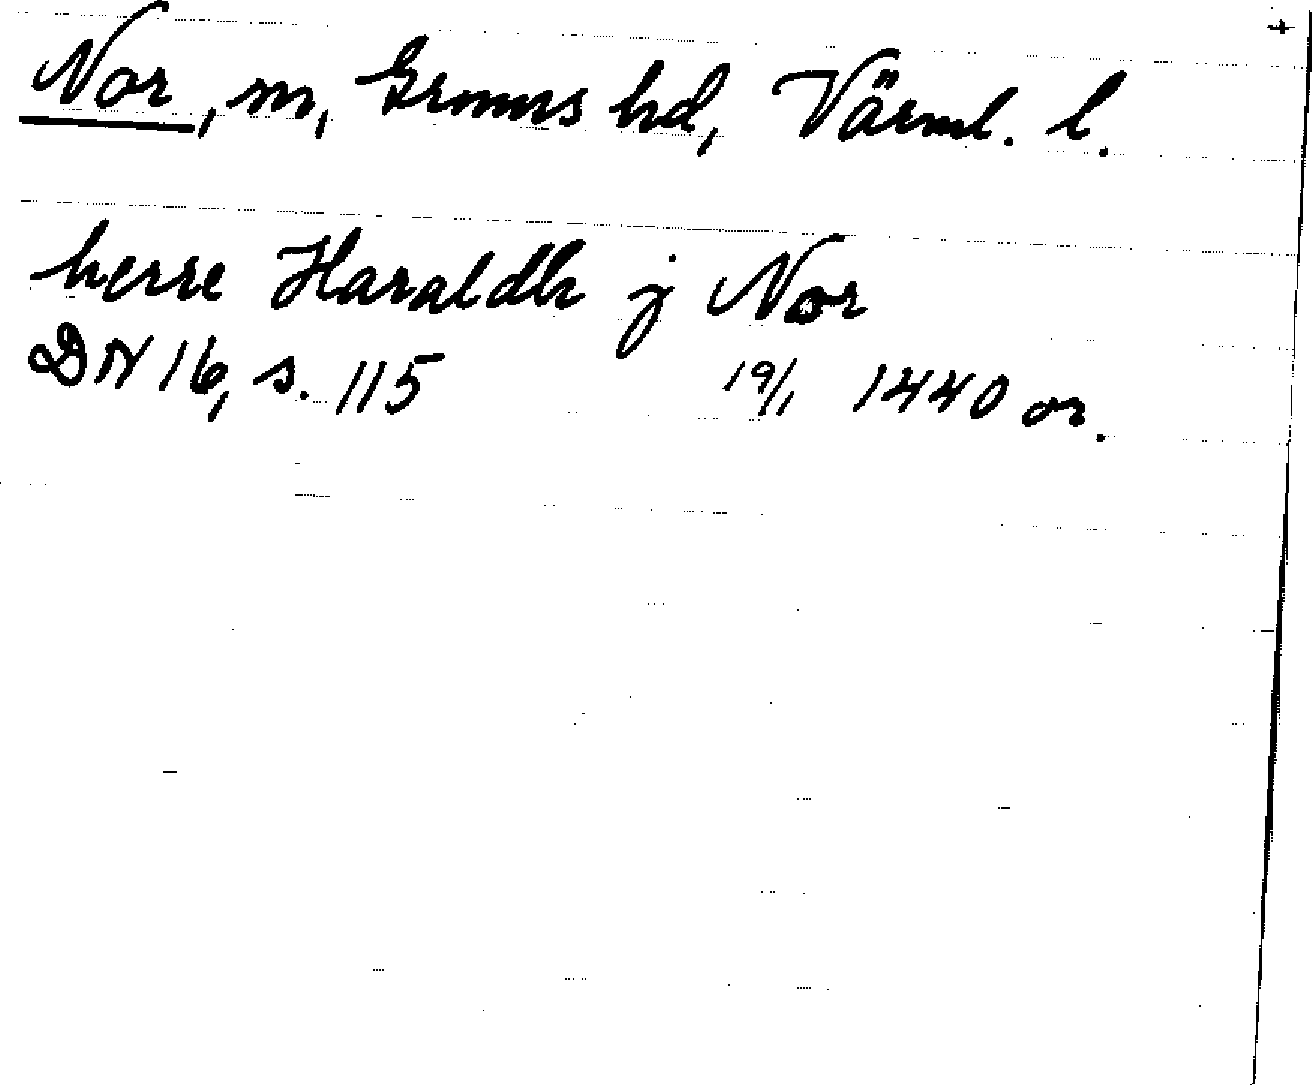 Nor, sn, Grums hd, Värml. l.
herre Haraldh j Nor
DN 16, s. 115 19/1 1440 or.